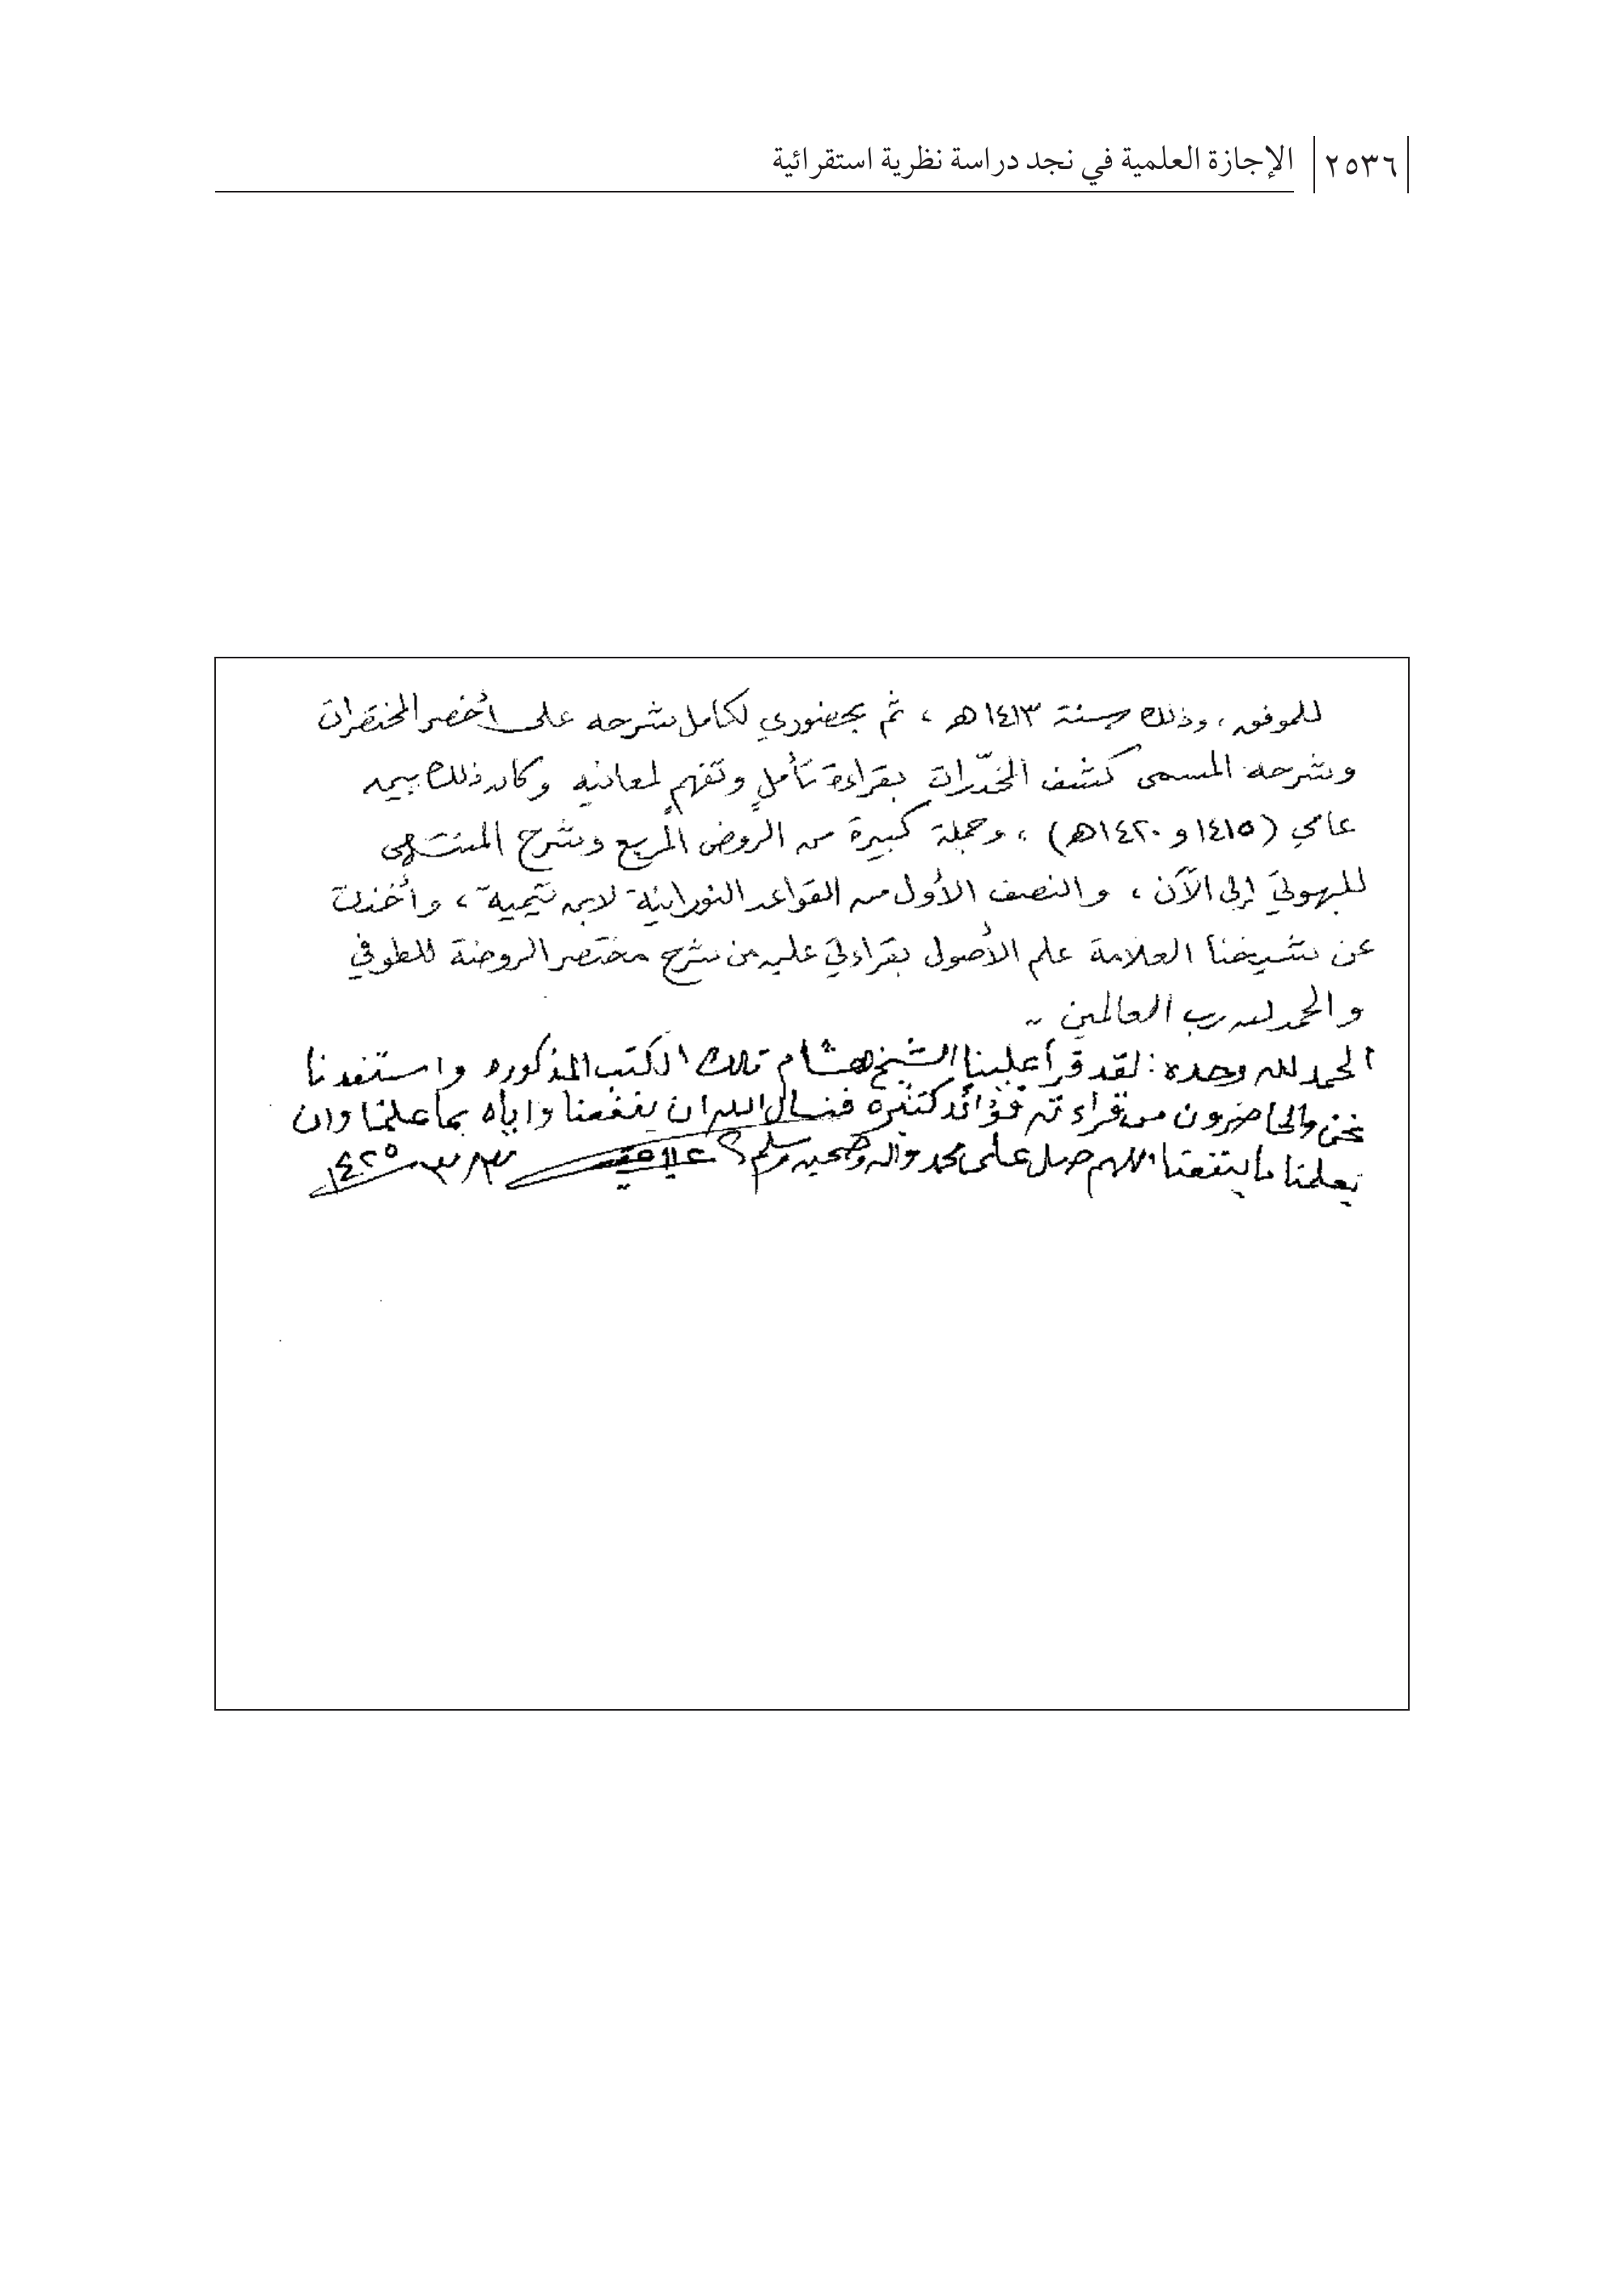 ٢٥٣٦ الإجازة العلمية في نجد دراسة نظرية استقرائية
للموفق ، وذلك سنة ١٤١٣هـ ، ثم بحضوري لكامل شرحه على أخصر المختصرات
وشرحه المسمى كشف المخدّرات بقراءة تأملٍ وتفهمٍ لمعانيه وكان ذلك بين
عامي (١٤١٥ و ١٤٢٠هـ) ، وجملة كبيرة من الروض المربع وشرح المنتهى
للبهوتي إلى الآن ، والنصف الأول من القواعد النورانية لابن تيمية ، وأخذت
عن شيخنا العلامة علم الأصول بقراءتي عليه من شرح مختصر الروضة للطوفي
والحمد لله رب العالمين ..
الحمد لله وحده : لقد قرأ علينا الشيخ هشام تلك الكتب المذكوره واستفدنا
نحن والحاضرون من قراءته فوائد كثيره فنسال الله ان ينفعنا واياه بما علمنا وان
يعلمنا ما ينفعنا اللهم صل على محمد واله وصحبه وسلم ٣/٣/١٤٢٥